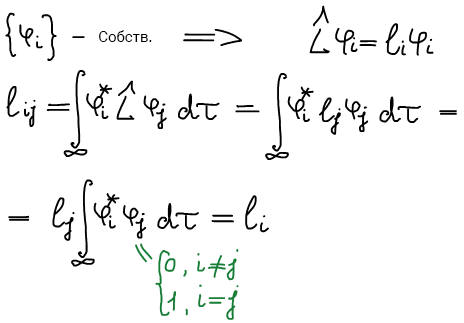 {φᵢ} – Собств. ⟹ L̂φᵢ = lᵢφᵢ
lᵢⱼ = ∫_∞ φᵢ* L̂ φⱼ dτ = ∫_∞ φᵢ* lⱼφⱼ dτ =
= lⱼ ∫_∞ φᵢ* φⱼ dτ = lᵢ
= {0, i≠j
{1, i=j